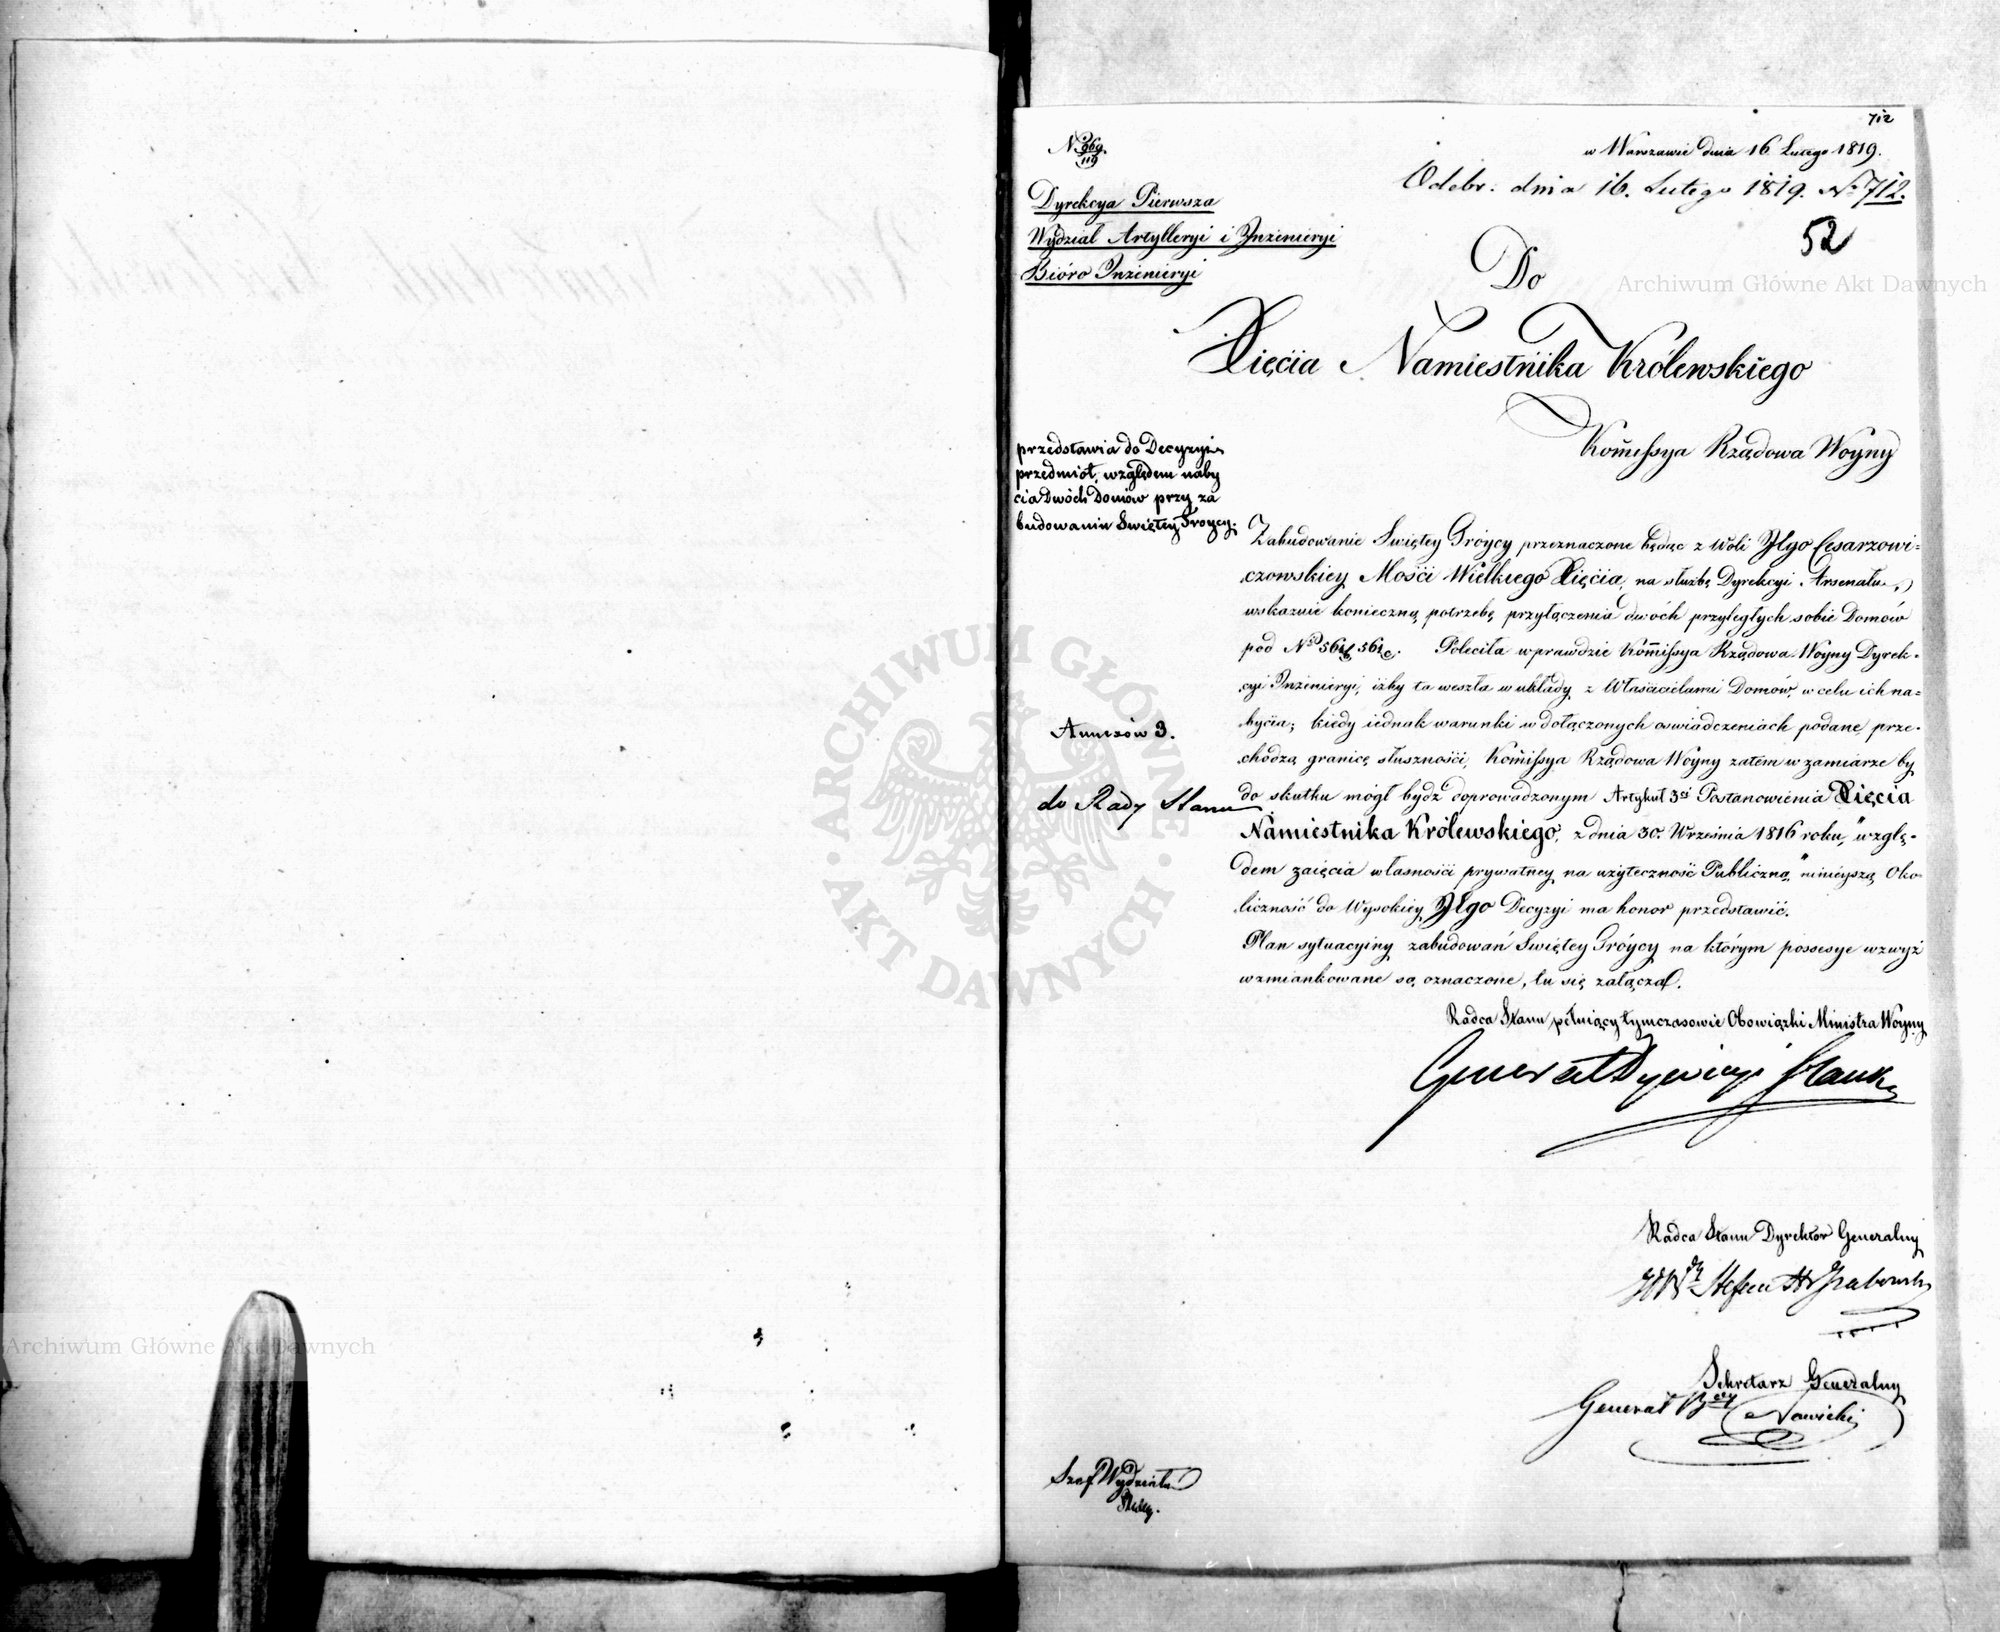 712
No 969/119.
w Warszawie dnia 16 Lutego 1819.
Odebr. dnia 16. Lutego 1819. No 712.
Dyrekcya Pierwsza
Wydział Artylleryi i Inżenieryi
Bióro Inżenieryi
52
Do
Xięcia Namiestnika Królewskiego
Kommissya Rządowa Woyny
przedstawia do Decyzyi
przedmiot, względem naby
cia Dwóch Domów przy za
budowaniu Swiętey Troycy.
Zabudowanie Swiętey Tróycy przeznaczone będąc z Woli JEgo Cesarzowi=
czowskiey Mości Wielkiego Xięcia, na służbę Dyrekcyi Arsenału,
wskazuie konieczną potrzebę przyłączenia dwóch przyległych sobie Domów
pod No 564b 564c. Poleciła wprawdzie Kommissya Rządowa Woyny Dyrek=
cyi Inżenieryi, iżby ta weszła w układy z Właścicielami Domów, w celu ich na=
bycia; kiedy iednak warunki w dołączonych oswiadczeniach podane, prze=
chodzą granicę słuszności, Kommissya Rządowa Woyny zatem w zamiarze by
do skutku mógł bydź doprowadzonym Artykuł 3ci Postanowienia Xięcia
Namiestnika Królewskiego, z dnia 30. Września 1816 roku, "wzglę=
dem zaięcia własności prywatney na użyteczność Publiczną," ninieyszą Oko=
liczność do Wysokiey JEgo Decyzyi ma honor przedstawić.
Plan sytuacyiny zabudowań Swiętey Tróycy na którym possesye wzwyż
wzmiankowane są oznaczone, tu się załącza.
Annexów 3.
do Rady Stanu
Radca Stanu pełniący tymczasowie Obowiązki Ministra Woyny
Generał Dywizyi Hauke
Radca Stanu Dyrektor Generalny
Stefan Hr Grabowski
Sekretarz Generalny
Generał Bry Nowicki
Szef Wydziału
Archiwum Główne Akt Dawnych
Archiwum Główne Akt Dawnych
ARCHIWUM GŁÓWNE · AKT DAWNYCH ·